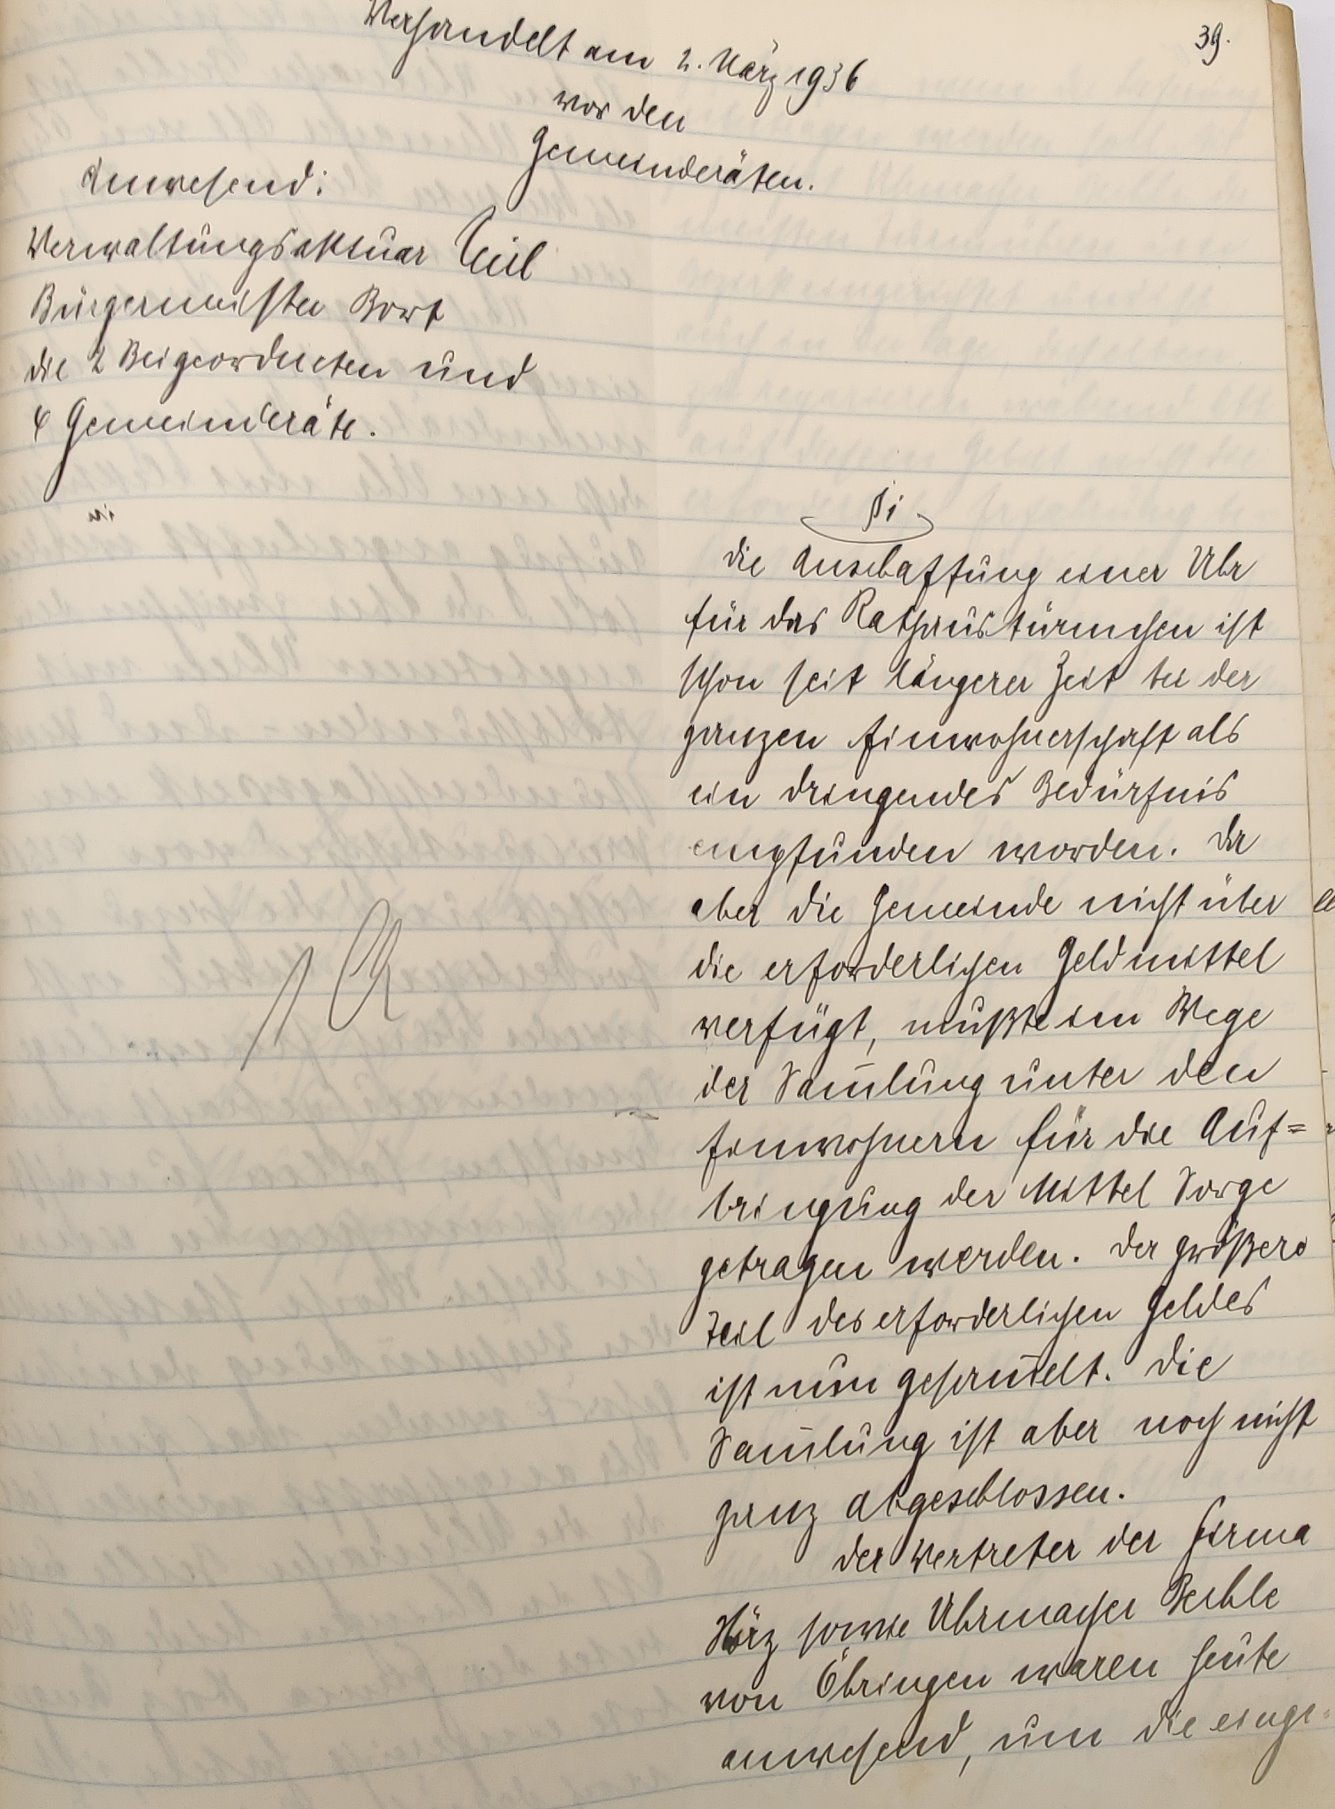 39.
Verhandelt am 2. März 1936
vor den
Gemeinderäten.
Anwesend:
Verwaltungsaktuar Keil
Bürgermeister Bort
die 2 Beigeordneten und
4 Gemeinderäte.
§ 1
Die Anschaffung einer Uhr
für das Rathaustürmchen ist
schon seit längerer Zeit bei der
ganzen Einwohnerschaft als
ein dringendes Bedürfnis
empfunden worden. Da
aber die Gemeinde nicht über
die erforderlichen Geldmittel
verfügt, mußte im Wege
der Sam̄lung unter den
Einwohnern für die Auf=
bringung der Mittel Sorge
getragen werden. Der größere
Teil des erforderlichen Geldes
ist nun gesam̄elt. Die
Sam̄lung ist aber noch nicht
ganz abgeschlossen.
Der Vertreter der Firma
Hörz sowie Uhrmacher
von Öhringen waren heute
anwesend, um die einge-